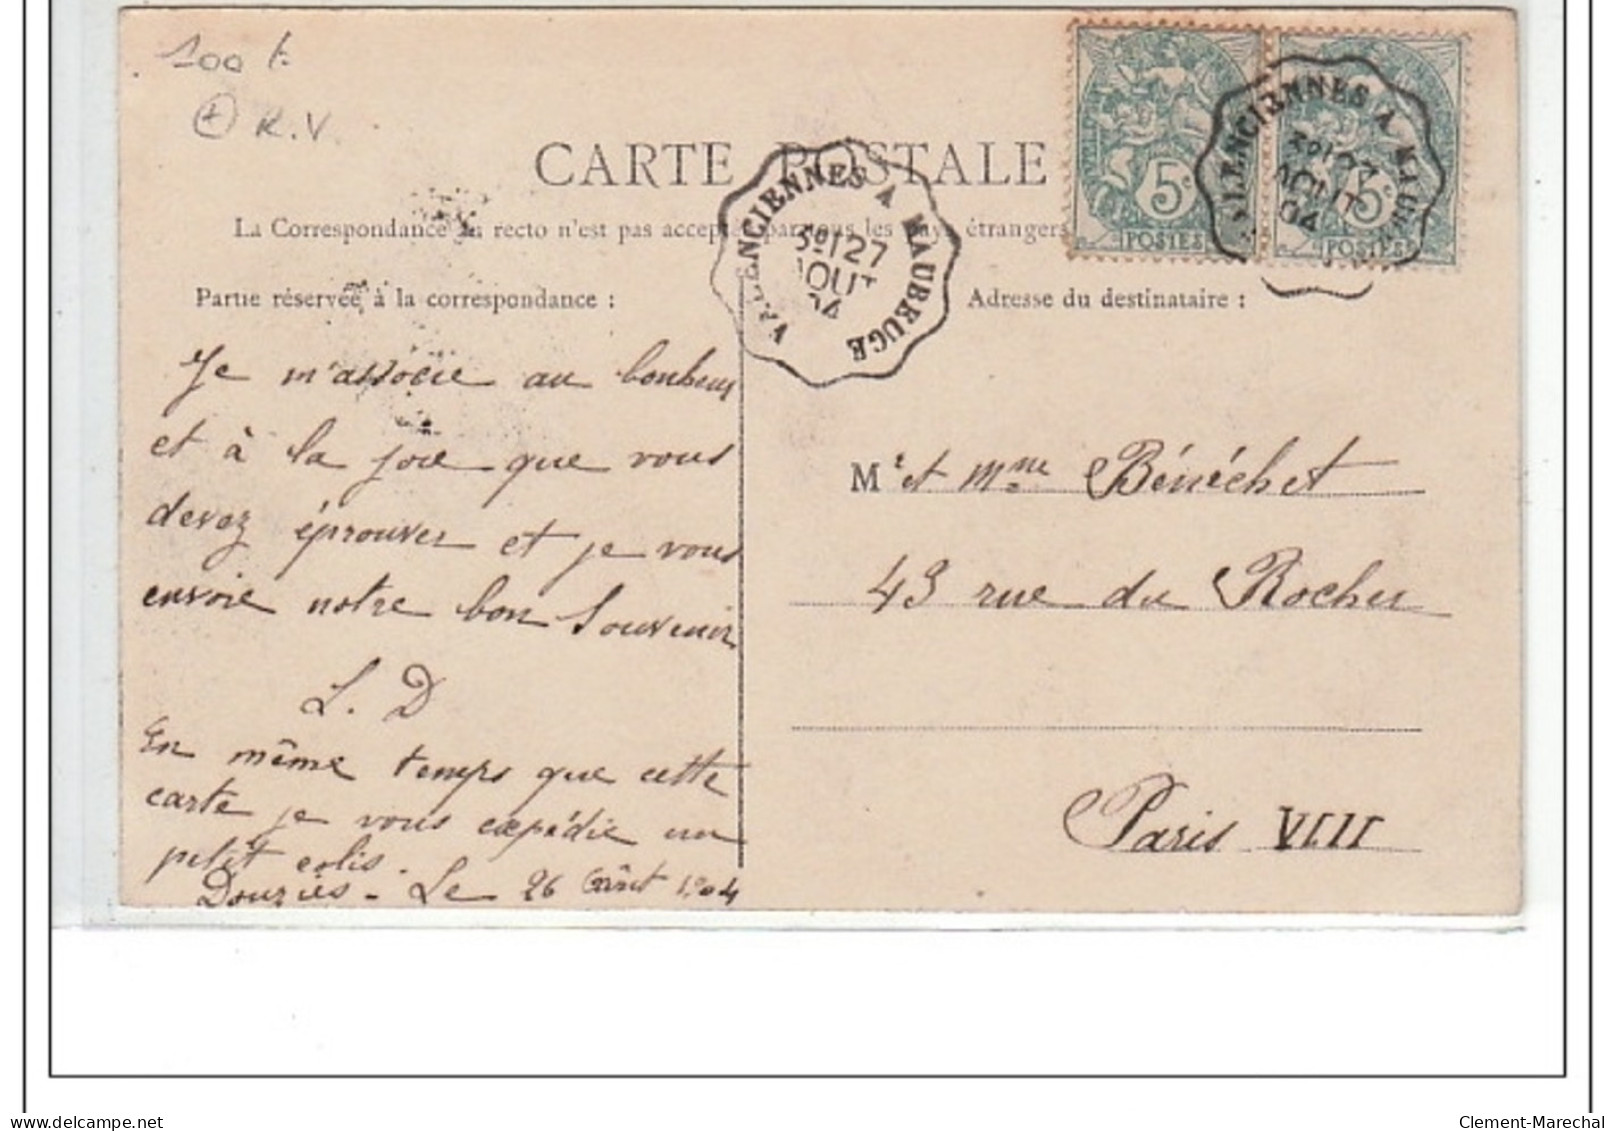 100 f.
R.V.
CARTE POSTALE
La Correspondance au recto n'est pas acceptée par tous les pays étrangers
Partie réservée à la correspondance :
Adresse du destinataire :
5c
POSTES
5c
POSTES
VALENCIENNES A MAUBEUGE
3º 27
AOUT
04
VALENCIENNES A MAUBEUGE
3º 27
AOUT
04
Je m'associe au bonheur
et à la joie que vous
devez éprouver et je vous
envoie notre bon Souvenir
L. D
En même temps que cette
carte je vous expédie un
petit colis.
Douzies - Le 26 Août 1904
Mr et Mme Bénéchet
43 rue du Rocher
Paris VIII
delcampe.net
Clement-Marechal